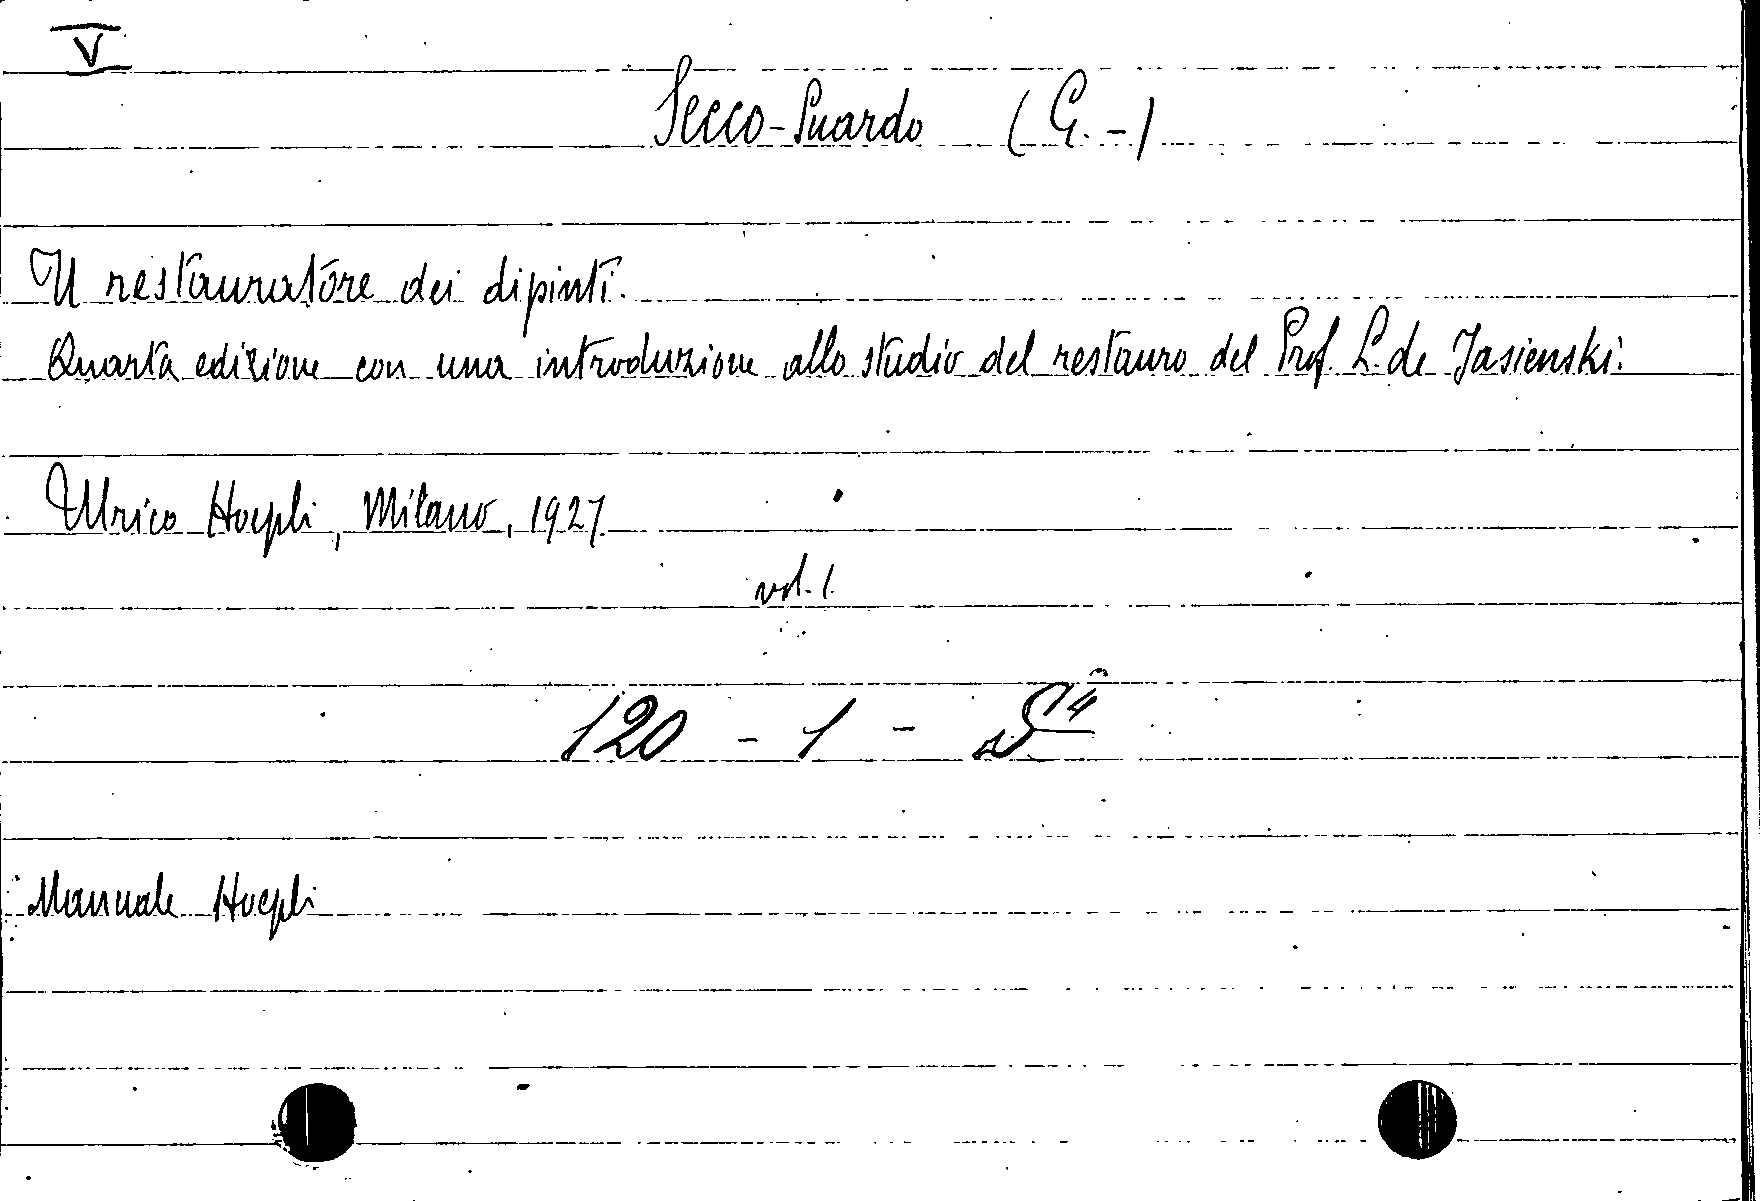 V
Secco-Suardo (G.-)
Il restauratore dei dipinti.
Quarta edizione con una introduzione allo studio del restauro del Prof. L. de Jasienski.
Ulrico Hoepli, Milano, 1927.
vol. 1.
120 - 1 -
Manuale Hoepli